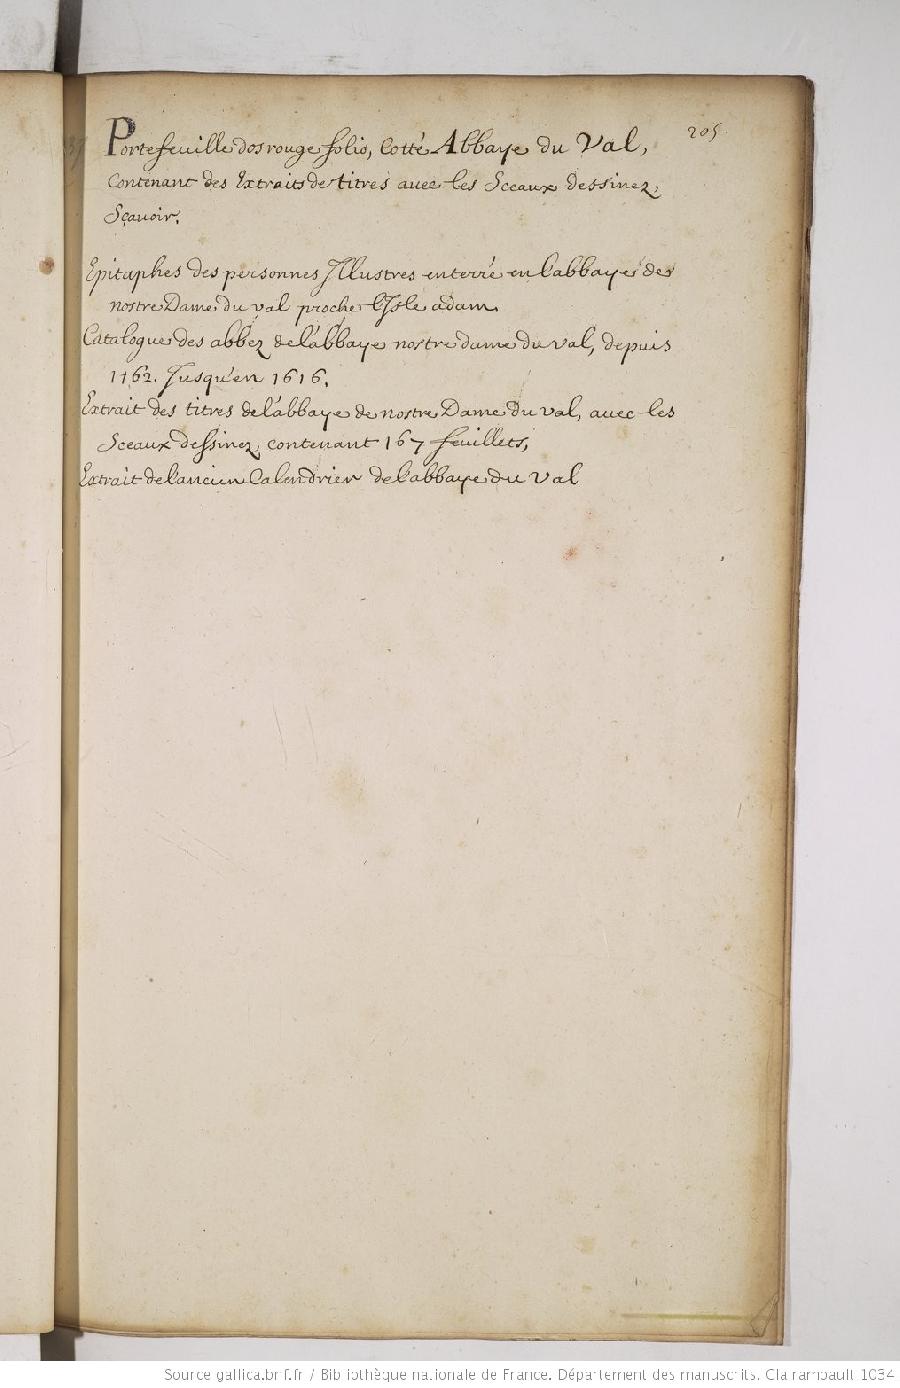 205
Portefeuille dos rouge folio, Cotté Abbaye du Val,
Contenant des Extraits de titres avec les Sceaux dessinez,
Sçavoir,
Epitaphes des personnes Illustres enterré en l'abbaye de
nostre Dame du val proche l'Isle adam.
Catalogue des abbez de l'abbaye nostre dame du val, depuis
1162. Jusqu'en 1616,
Extrait des titres de l'abbaye de nostre Dame du val, avec les
Sceaux dessinez, contenant 167 feuillets,
Extrait de l'ancien Calendrier de l'abbaye du Val
Source gallica.bnf.fr / Bibliothèque nationale de France. Département des manuscrits. Clairambault 1034